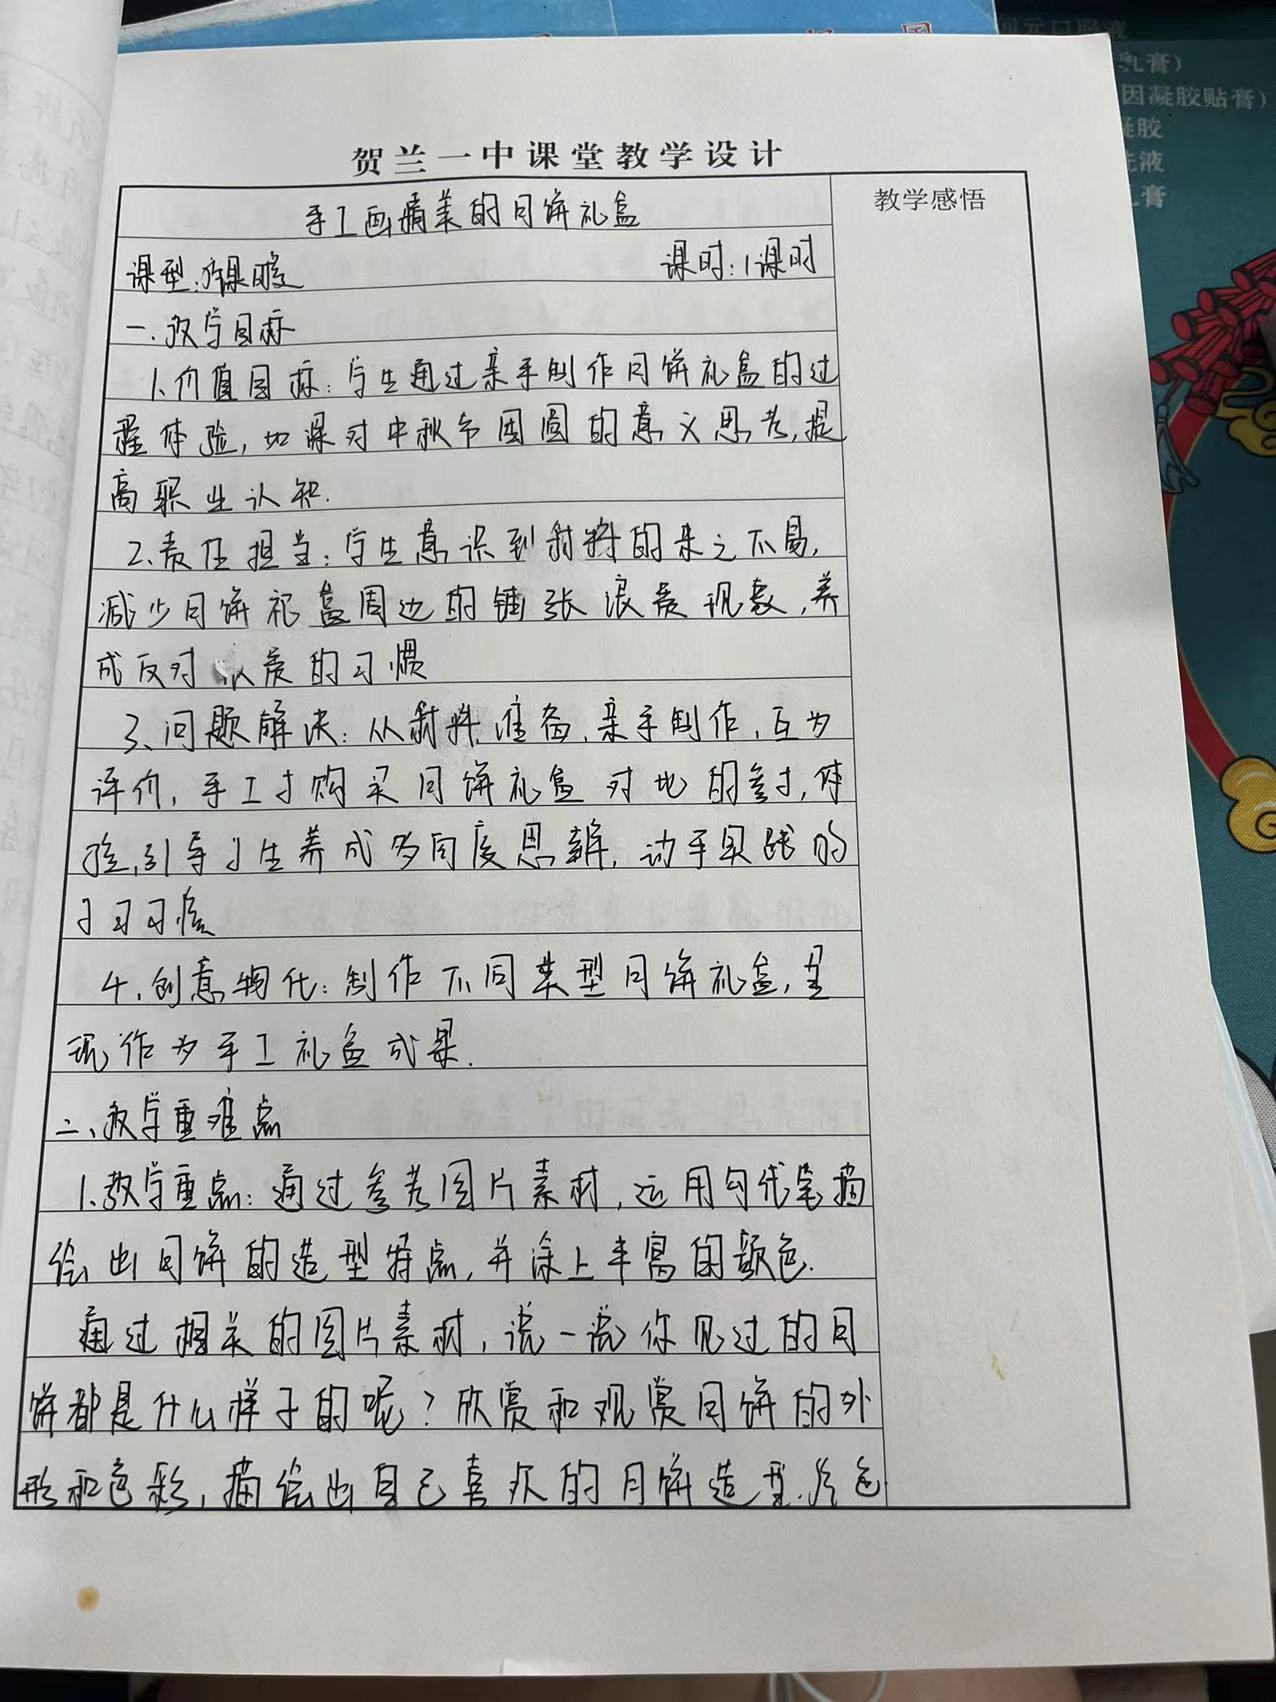 国
列元口服液
乳膏）
因凝胶贴膏）
凝胶
洗液
乳膏
贺兰一中课堂教学设计
教学感悟
手工画精美的月饼礼盒
课型: 课时:1课时
一.教学目标
1.价值目标:学生通过亲手制作月饼礼盒的过
程体验,加深对中秋节团圆的意义思考,提
高职业认知.
2.责任担当:学生意识到材料的来之不易,
减少月饼礼盒周边的铺张浪费现象,养
成反对浪费的习惯
3、问题解决:从材料准备,亲手制作,互为
评价,手工与购买月饼礼盒对比的参与,体
验,引导学生养成多向度思辨,动手实践的
学习习惯
4.创意物化:制作不同类型月饼礼盒,呈
现作为手工礼盒成果.
二、教学重难点
1.教学重点:通过参考图片素材,运用勾线笔描
绘出月饼的造型特点,并涂上丰富的颜色.
通过相关的图片素材,说一说你见过的月
饼都是什么样子的呢?欣赏和观赏月饼的外
形和色彩,描绘出自己喜欢的月饼造型.涂色